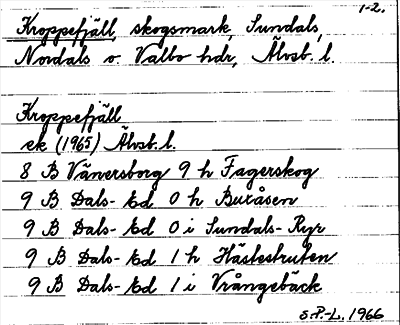 1-2.
Kroppefjäll, skogsmark, Sundals,
Nordals o. Valbo hdr, Älvsb. l.
Kroppefjäll
ek (1965) Älvsb. l.
8 B Vänersborg 9 h Fagerskog
9 B Dals-Ed 0 h Buråsen
9 B Dals-Ed 0 i Sundals-Ryr
9 B Dals-Ed 1 h Hästestruten
9 B Dals-Ed 1 i Vrångebäck
S.P-L. 1966